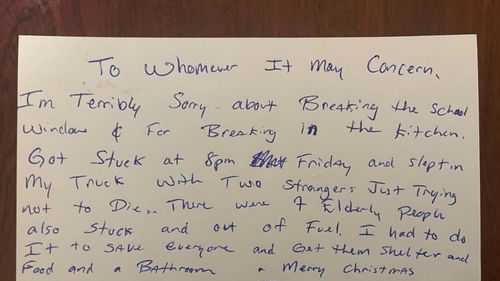 To Whomever It May Concern,
I'm Terribly Sorry about Breaking the School
Window & For Breaking in the Kitchen.
Got Stuck at 8pm Friday and slept in
My Truck with Two Strangers Just Trying
not to Die.. There were 7 Elderly People
also Stuck and out of Fuel. I had to do
It to SAVE everyone and Get them Shelter and
Food and a Bathroom. Merry Christmas